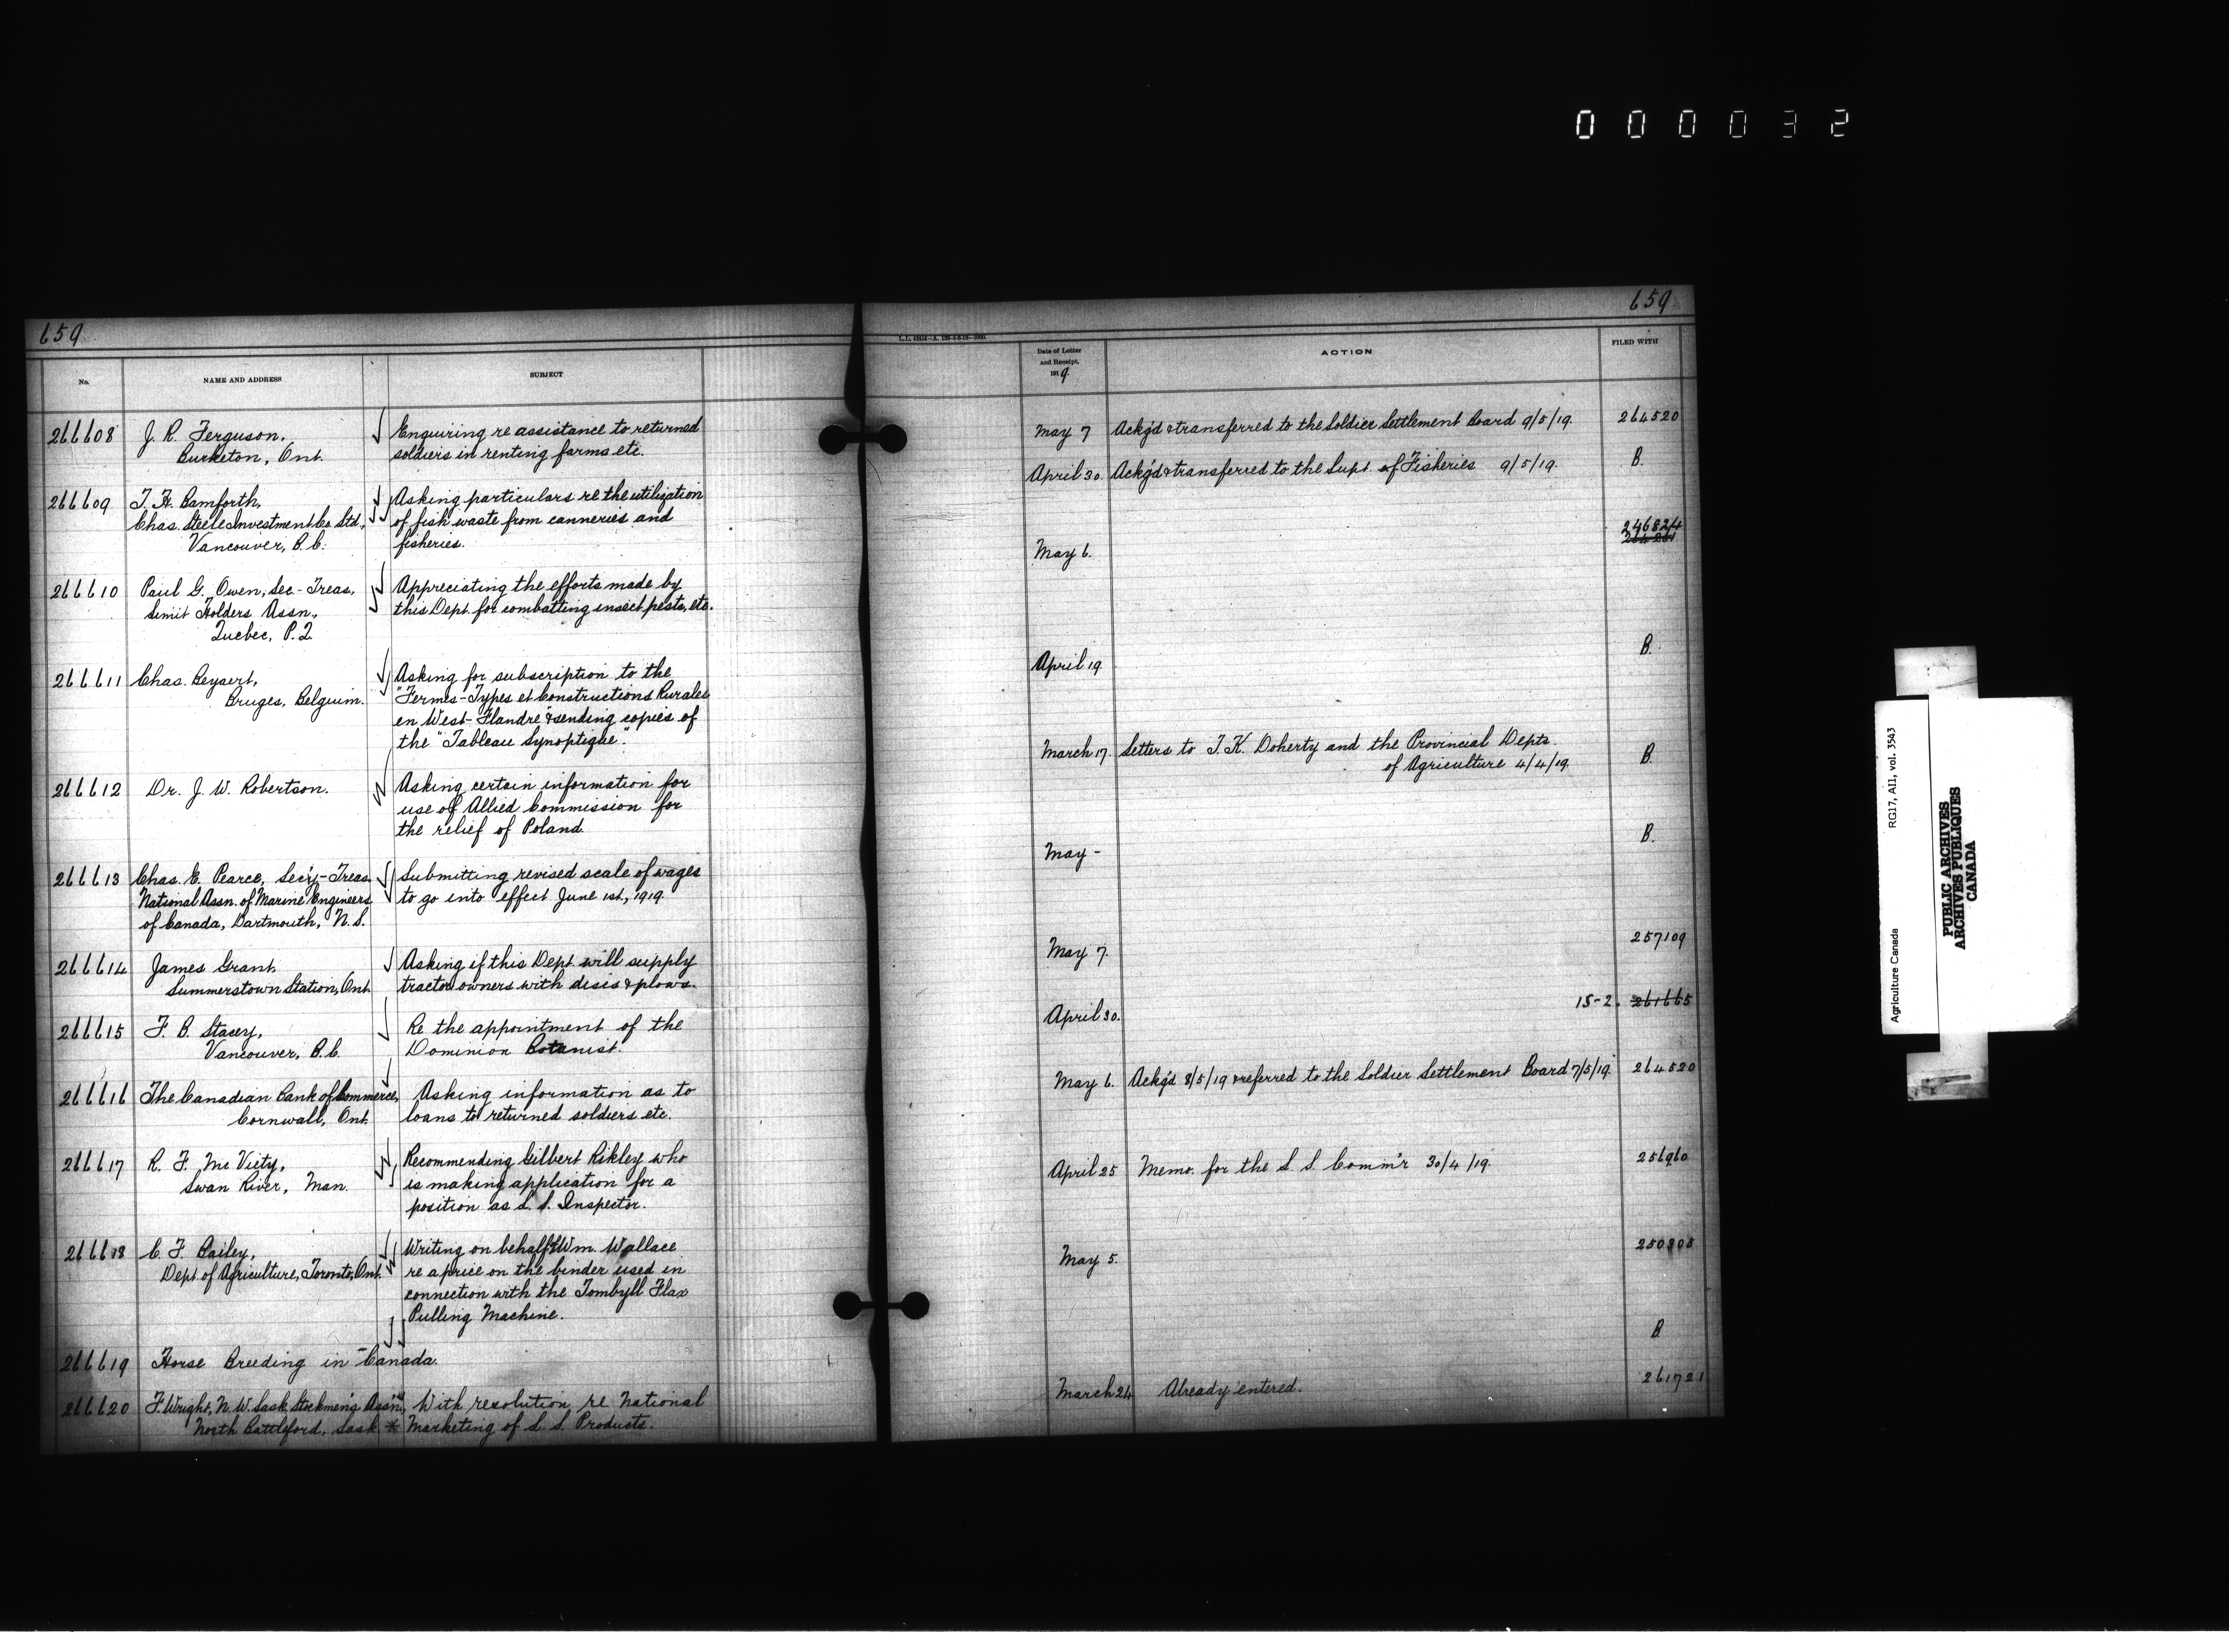 000032
659
No.
NAME AND ADDRESS
SUBJECT
266608
J. R. Ferguson,
Burketon, Ont.
Enquiring re assistance to returned
soldiers in renting farms etc.
266609
T. H. Bamforth,
Chas. Steele Investment Co. Ltd.,
Vancouver, B.C.
Asking particulars re the utilization
of fish waste from canneries and
fisheries.
266610
Paul G. Owen, Sec-Treas,
Limit Holders Assn.,
Quebec, P.Q.
Appreciating the efforts made by
this Dept. for combatting insect pests, etc.
266611
Chas. Beysert,
Bruges, Belguim.
Asking for subscription to the
"Fermes-Types et Constructions Rurales
en West-Flandre" & sending copies of
the "Tableau Synoptique".
266612
Dr. J. W. Robertson.
Asking certain information for
use of Allied Commission for
the relief of Poland.
266613
Chas. E. Pearce, Sec'y-Treas.
National Assn. of Marine Engineers
of Canada, Dartmouth, N.S.
Submitting revised scale of wages
to go into effect June 1st, 1919.
266614
James Grant
Summerstown Station, Ont.
Asking if this Dept. will supply
tractor owners with discs & plows.
266615
F. B. Stacey,
Vancouver, B.C.
Re the appointment of the
Dominion Botanist.
266616
The Canadian Bank of Commerce,
Cornwall, Ont.
Asking information as to
loans to returned soldiers etc.
266617
R. F. Mc Viety,
Swan River, Man.
Recommending Gilbert Rikley who
is making application for a
position as L. S. Inspector.
266618
C. F. Bailey,
Dept. of Agriculture, Toronto, Ont.
Writing on behalf of Wm. Wallace
re a price on the binder used in
connection with the Tombyll Flax
Pulling Machine.
266619
Horse Breeding in Canada.
266620
F Wright, N.W. Sask. Stockmen's Ass'n,
North Battleford, Sask. *
With resolution re National
Marketing of L. S. Products.
659
Date of Letter
and Receipt,
1919.
ACTION
FILED WITH
May 7
Ack'g'd & transferred to the Soldier Settlement Board 9/5/19.
264520
April 30.
Ack'g'd & transferred to the Supt. of Fisheries 9/5/19.
B.
May 6.
246824
April 19
B.
March 17.
Letters to T. K. Doherty and the Provincial Depts.
of Agriculture 4/4/19.
B.
May -
B.
May 7.
257109
April 30.
15-2.
261665
May 6.
Ack'g'd 8/5/19 & referred to the Soldier Settlement Board 7/5/19.
264520
April 25
Memo. for the L. S. Comm'r 30/4/19.
256960
May 5.
250808
B
March 24
Already entered.
261721
Agriculture Canada
RG17, A11, vol. 3543
PUBLIC ARCHIVES
ARCHIVES PUBLIQUES
CANADA